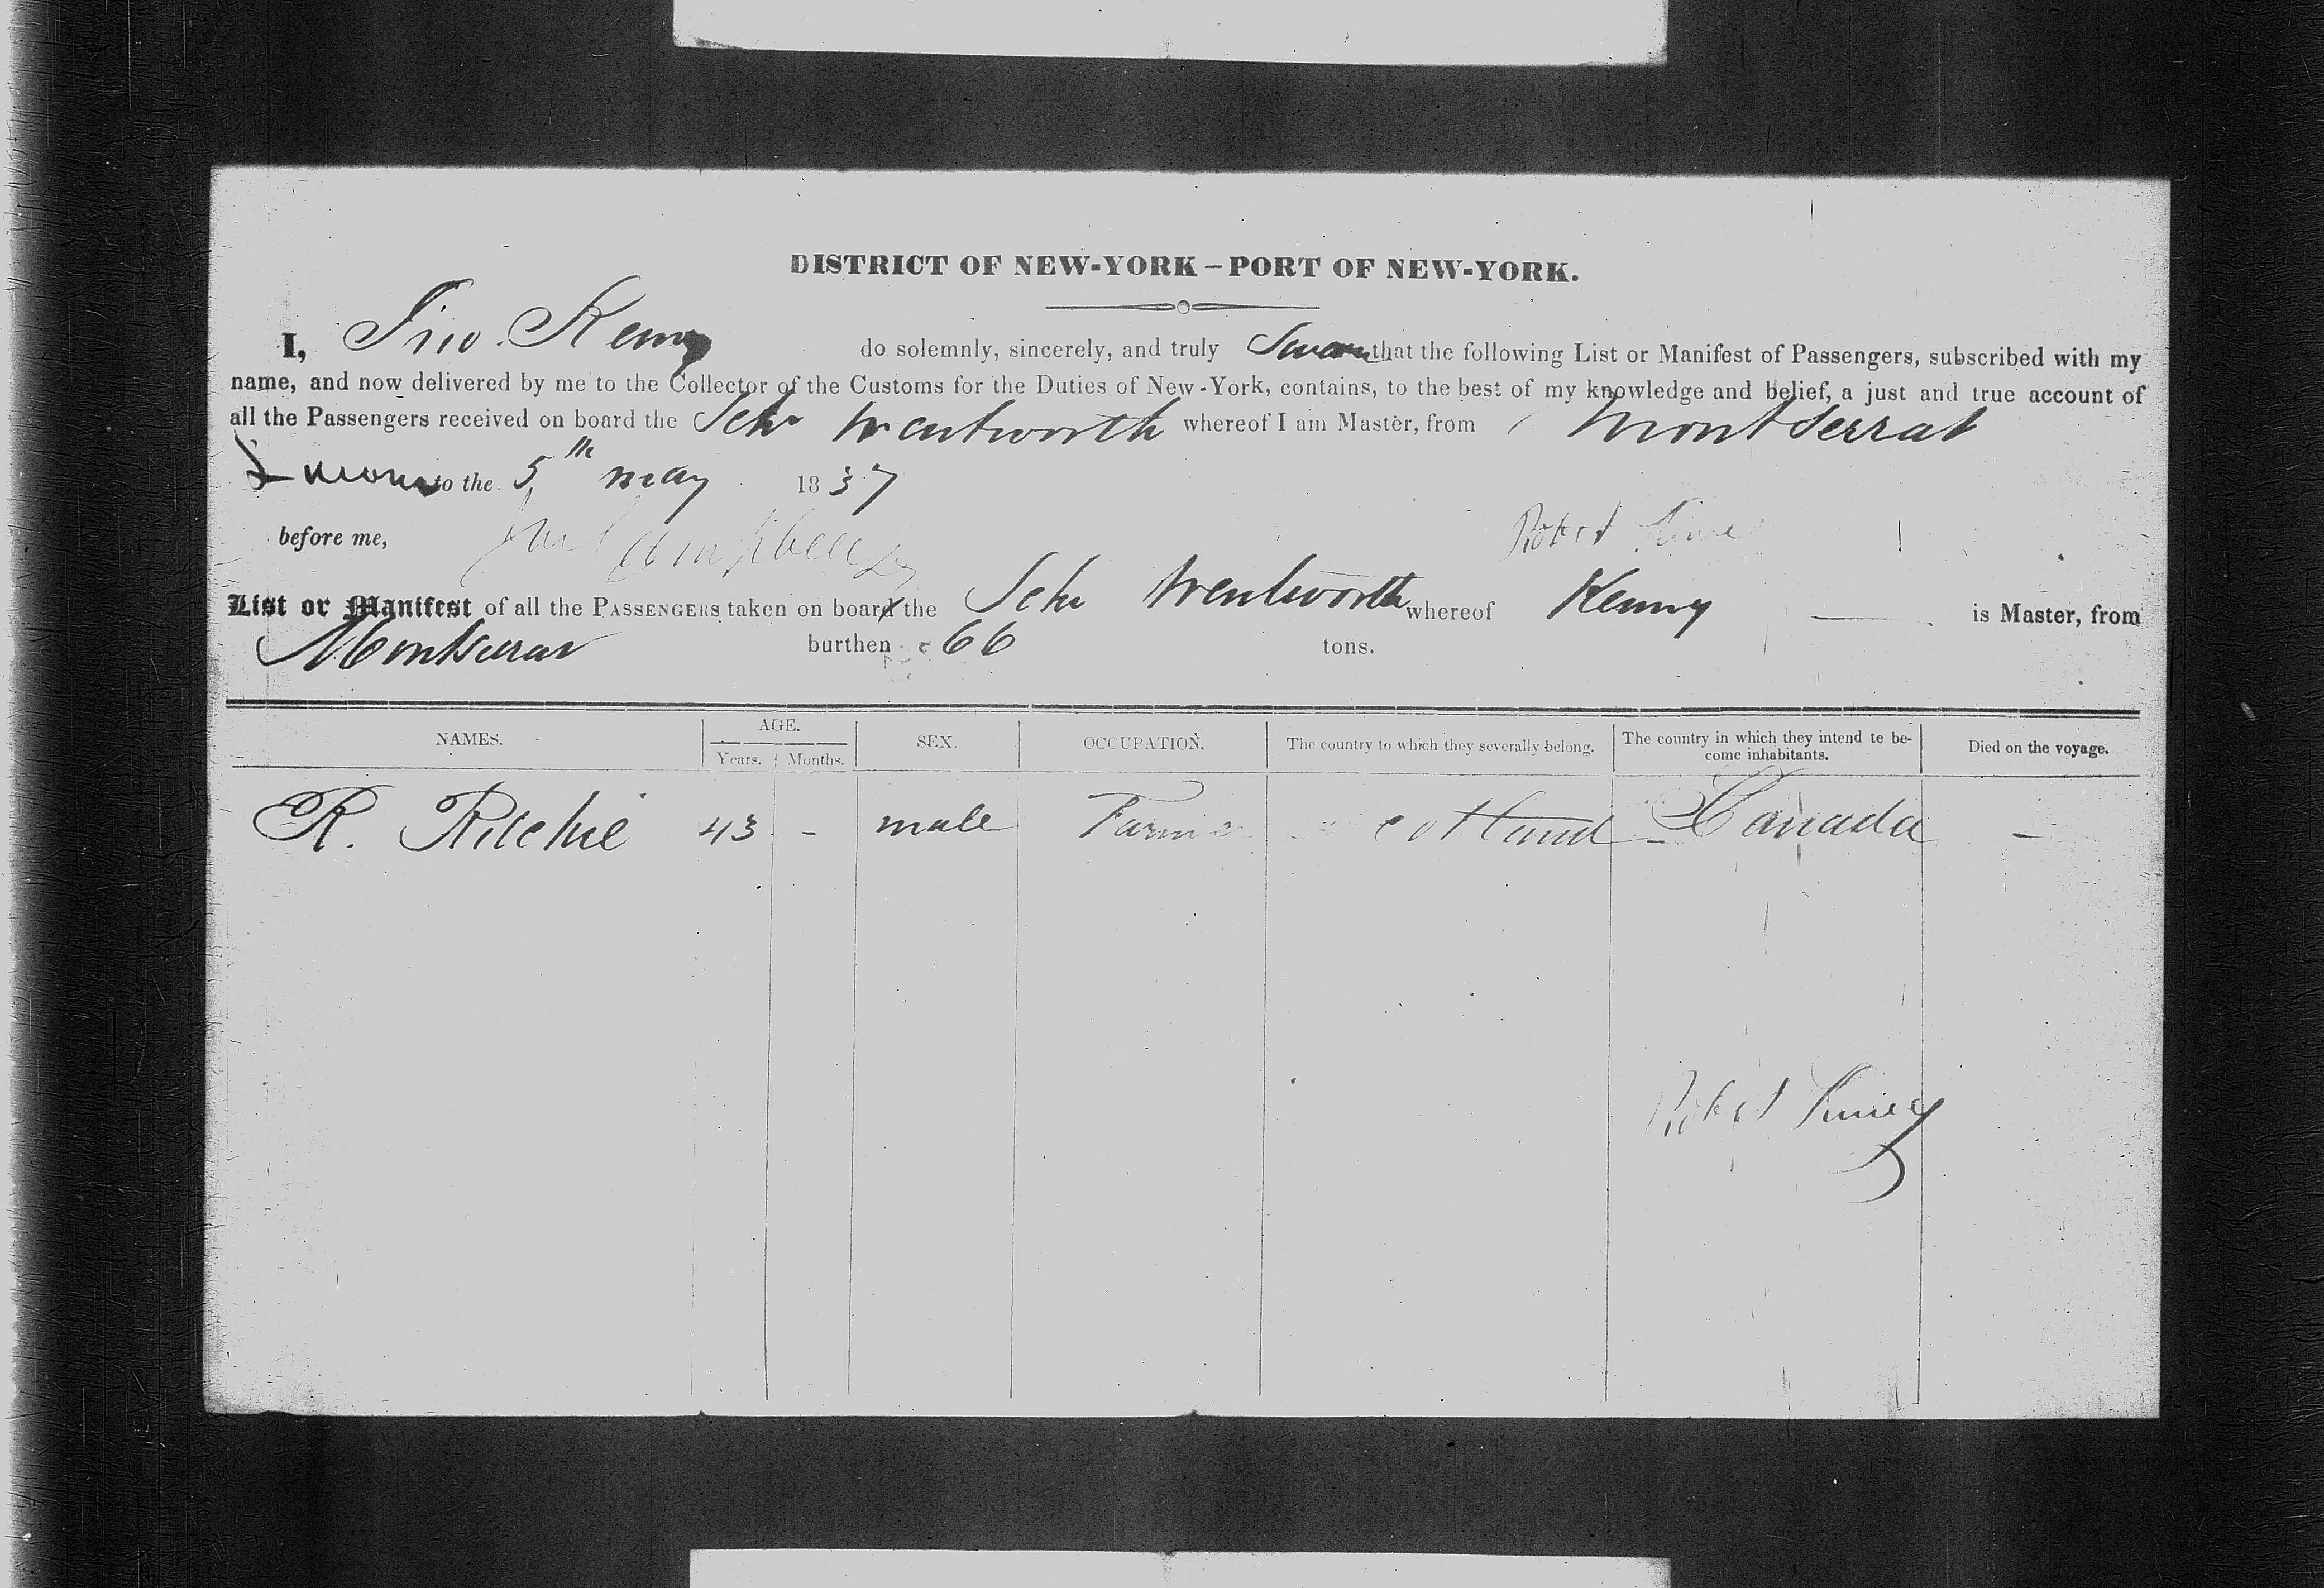 DISTRICT OF NEW-YORK – PORT OF NEW-YORK.
I, Jno. Kenny do solemnly, sincerely, and truly Swear that the following List or Manifest of Passengers, subscribed with my
name, and now delivered by me to the Collector of the Customs for the Duties of New-York, contains, to the best of my knowledge and belief, a just and true account of
all the Passengers received on board the Schr Wentworth whereof I am Master, from Montserrat
Sworn to the 5th may 1837
Robert
before me, Campbell
List or Manifest of all the PASSENGERS taken on board the Schr Wentworth whereof Kenny is Master, from
Montserrat burthen 66 tons.
NAMES. AGE. SEX. OCCUPATION. The country to which they severally belong. The country in which they intend te be-
come inhabitants. Died on the voyage.
Years. Months.
R. Ritchie 43 - male Farmer Scotland Canada —
Robert